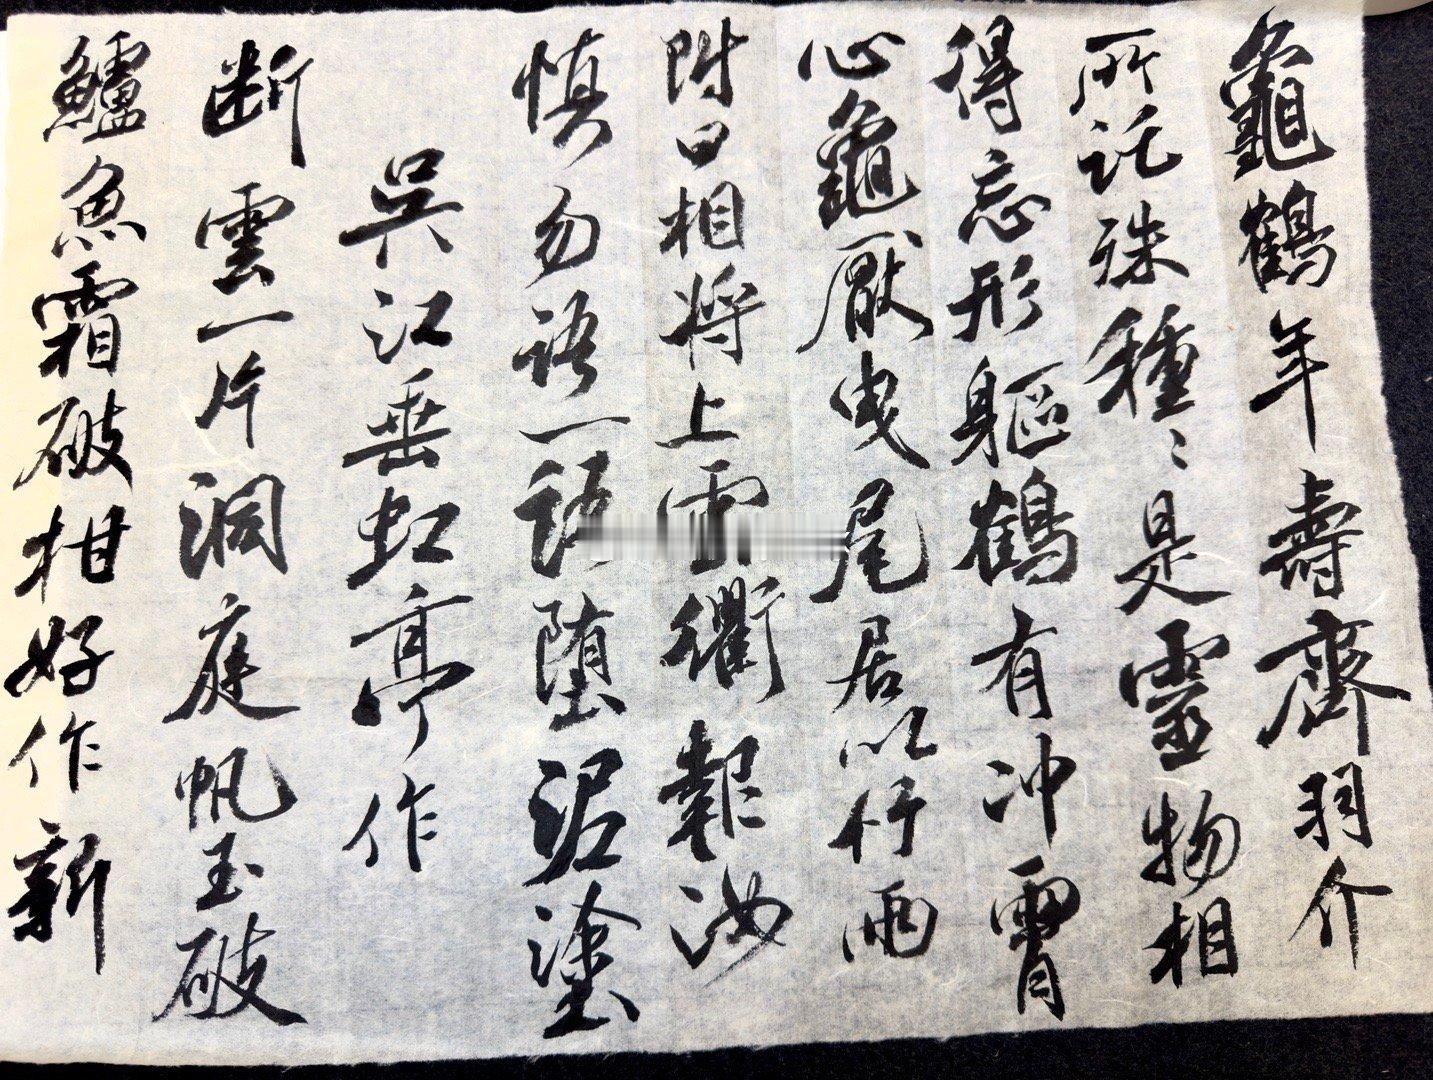 龜鶴年壽齊羽介
所託殊種〻是靈物相
得忘形軀鶴有冲霄
心龜厭曳尾居以竹兩
附口相将上雲衢報汝
慎勿語一語堕泥塗
吳江垂虹亭作
断雲一片洞庭帆玉破
鱸魚霜破柑好作新